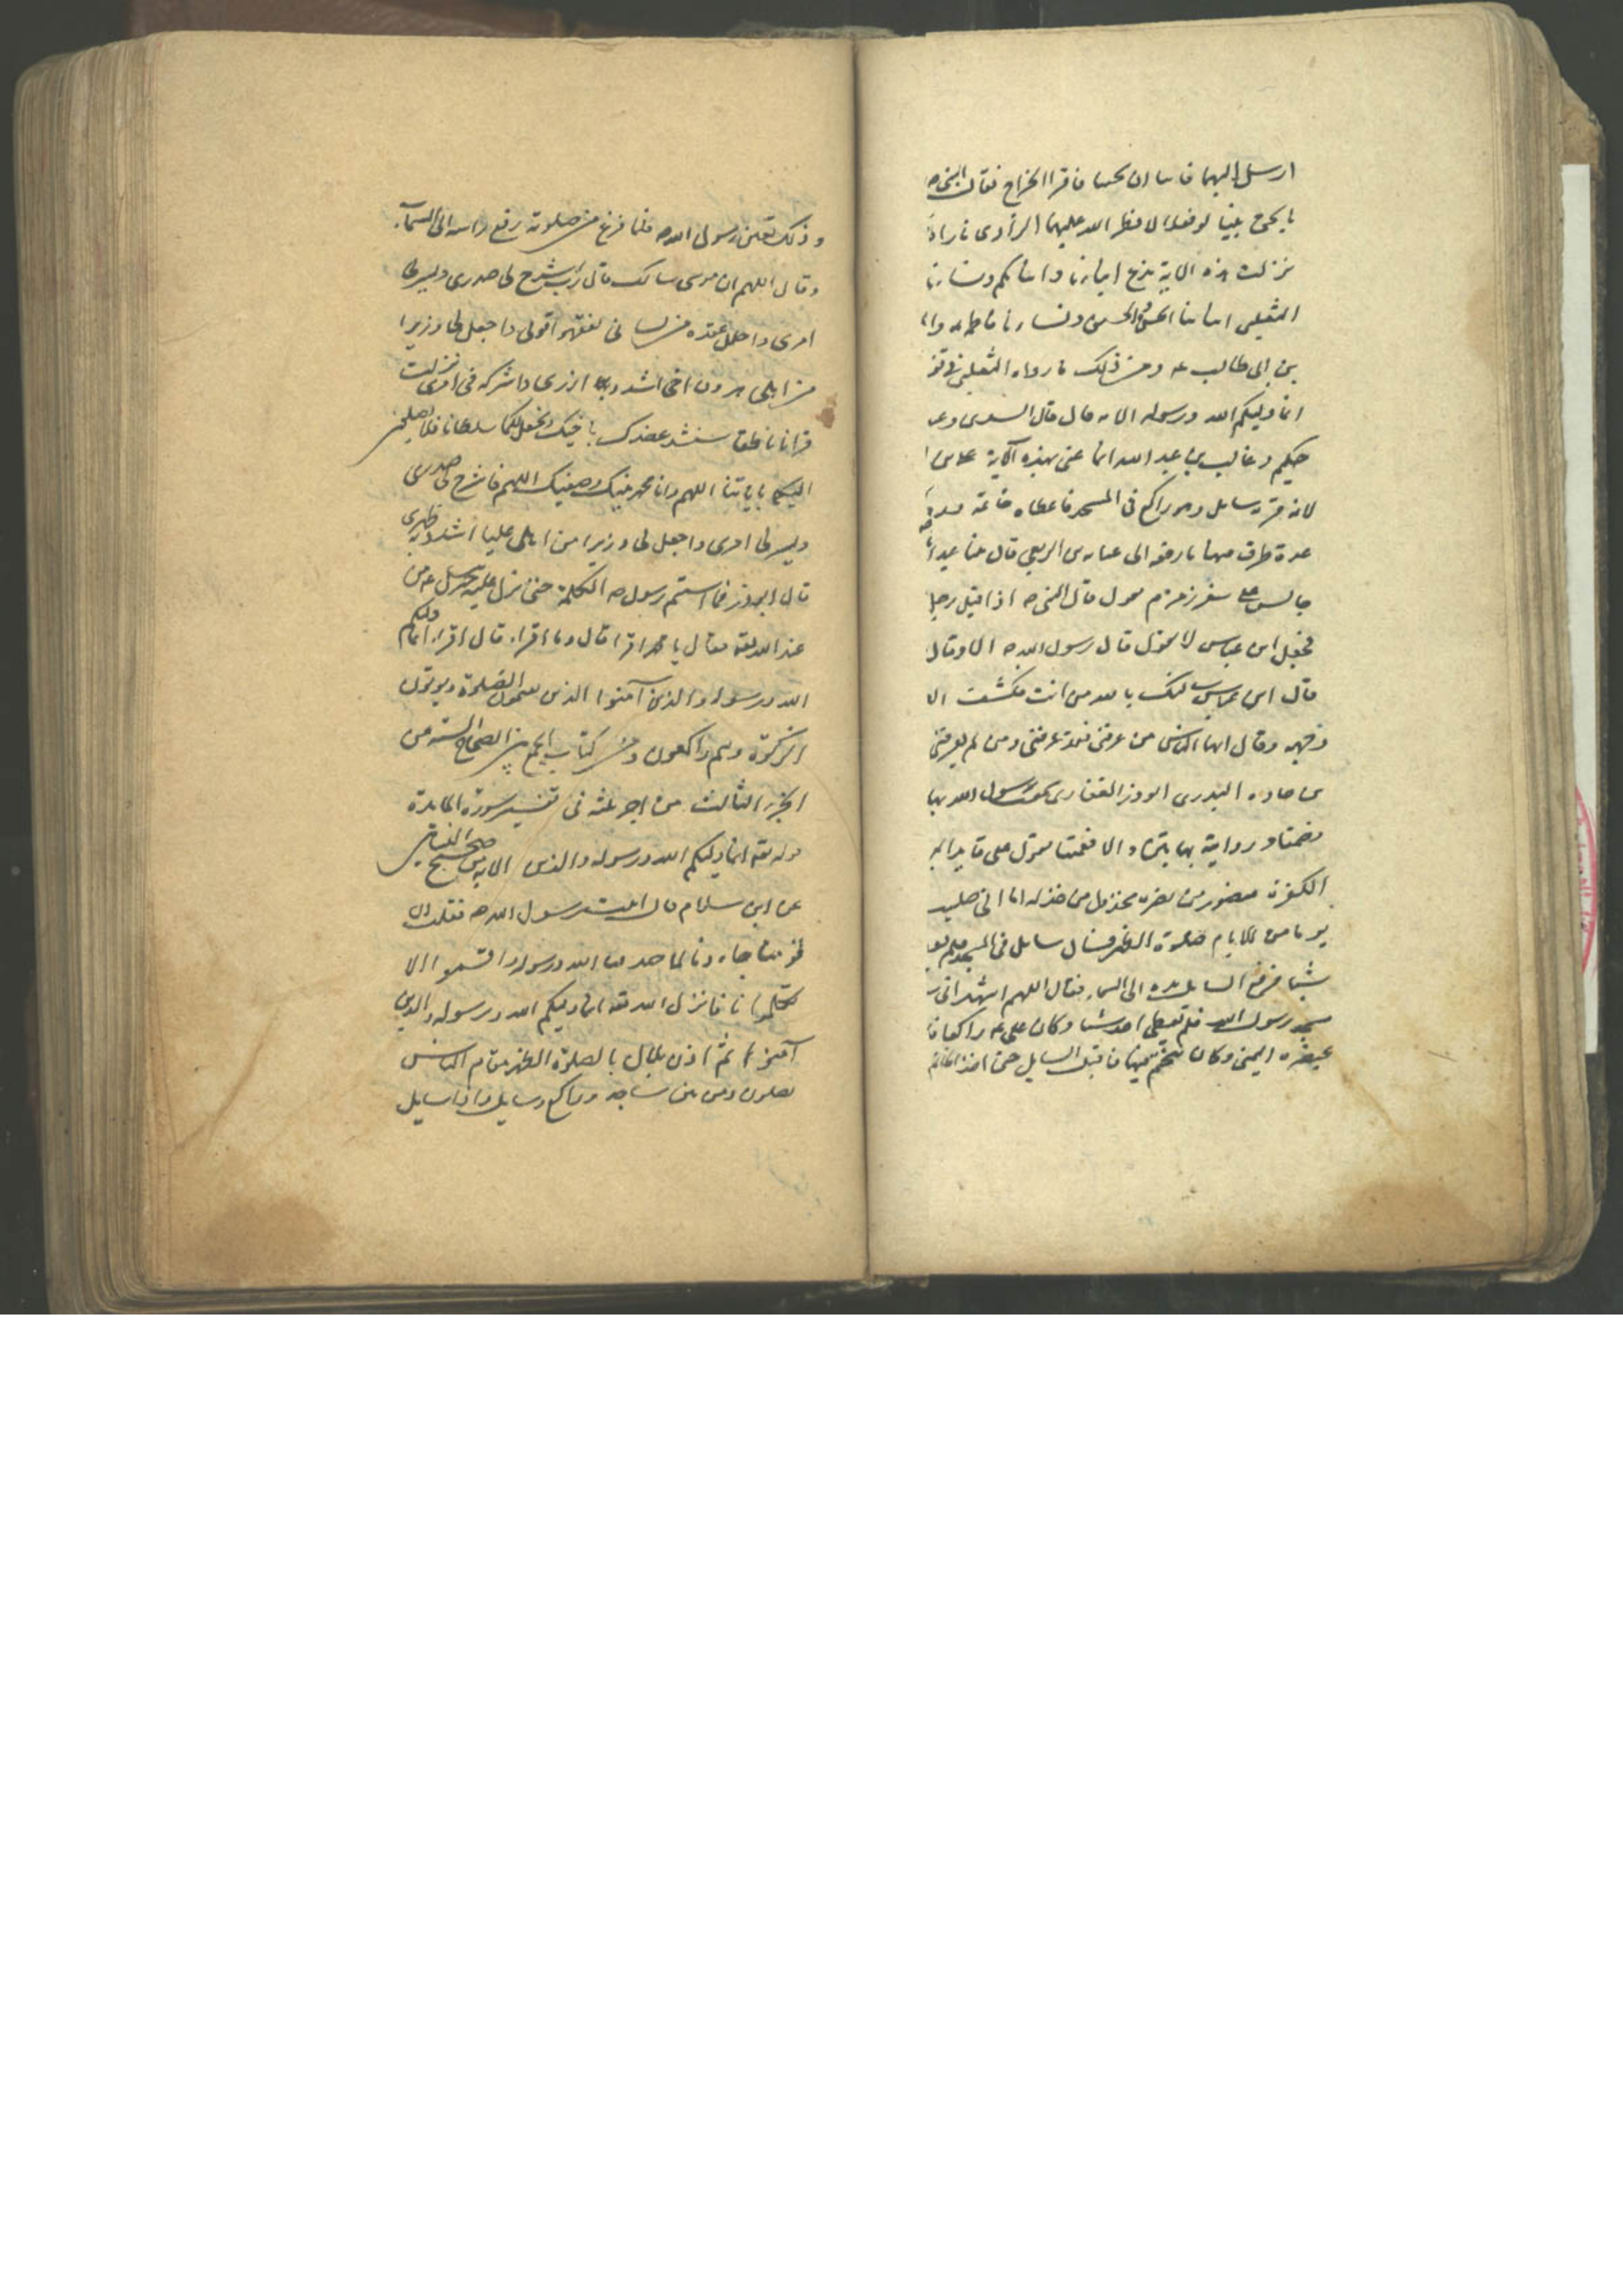 ارسل اليهما فابيا ان يجيبا فاقرا الخراج فقال النبى صه
بالحق بيننا لو فعلا لامطر الله عليهما الوادى نارا
نزلت هذه الاية ندع ابناءنا وابناءكم ونساءنا
الثعلبى ابناءنا الحسن والحسين ونساءنا فاطمه وا
بن ابى طالب عه ومن ذلك ما رواه الثعلبى فى
انما وليكم الله ورسوله الايه قال قال السدى و
حكيم وغالب بن عبد الله انما عنى بهذه الآية على
لانه مر به سايل وهو راكع فى المسجد فاعطاه خاتمه
عدة طرق منها ما رفعه الى عبايه بن الربعى قال بينا عبد
جالس على شفير زمزم يقول قال النبى صه اذ اقبل رجل
فجعل ابن عباس لا يقول قال رسول الله صه الا وقال
قال ابن عباس سالتك بالله من انت فكشف ا
وجهه وقال ايها الناس من عرفنى فقد عرفنى ومن لم يعرفنى
بن جناده البدرى ابو ذر الغفارى سمعت رسول الله بها
فصمتا و رواية بهاتين والا فعميتا يقول على قايد البر
الكفرة منصور من نصره مخذول من خذله اما انى صليت
يوما من الايام صلوة الظهر فسال سايل فى المسجد فلم
شيئا فرفع السايل يده الى السماء فقال اللهم اشهد انى
مسجد رسول الله فلم يعطنى احد شيئا وكان على عه راكعا فا
بخنصره اليمنى وكان يتختم فيها فاقبل السايل حتى اخذ الخاتم
وذلك بعين رسول الله صه فلما فرغ من صلوته رفع راسه الى السمآء
وقال اللهم ان موسى سالك قال رب اشرح لى صدرى ويسر لى
امرى واحلل عقده من لسانى يفقهوا قولى واجعل لى وزيرا
من اهلى هرون اخى اشدد به ازرى واشركه فى امرى فانزلت
قرانا ناطقا سنشد عضدك باخيك ونجعل لكما سلطانا فلا يصلون
اليكما باياتنا اللهم وانا محمد نبيك وصفيك اللهم فاشرح لى صدرى
ويسر لى امرى واجعل لى وزيرا من اهلى عليا اشدد به ظهرى
قال ابو ذر فما استتم رسول صه الكلمة حتى نزل عليه جبرئيل عه من
عند الله تعه فقال يا محمد اقرا قال وما اقراء قال اقراء انما وليكم
الله ورسوله والذين آمنوا الذين يقيمون الصلوة ويوتون
الزكوة وهم راكعون ومن كتاب الجمع بين الصحاح السته من
الجزء الثالث من اجزاء ثلثه فى تفسير سورة المايدة
قوله تعه انما وليكم الله ورسوله والذين الايه من صحيح النسائى
عن ابن سلام قال اتيت رسول الله صه فقلت ان
قومنا حادونا لما صدقنا الله ورسوله واقسموا ان لا
يكلمونا فانزل الله تعه انما وليكم الله ورسوله والذين
آمنوا ثم اذن بلال بالصلوة الظهر فقام الناس
يصلون فمن بين ساجد وراكع وسايل واذا سايل